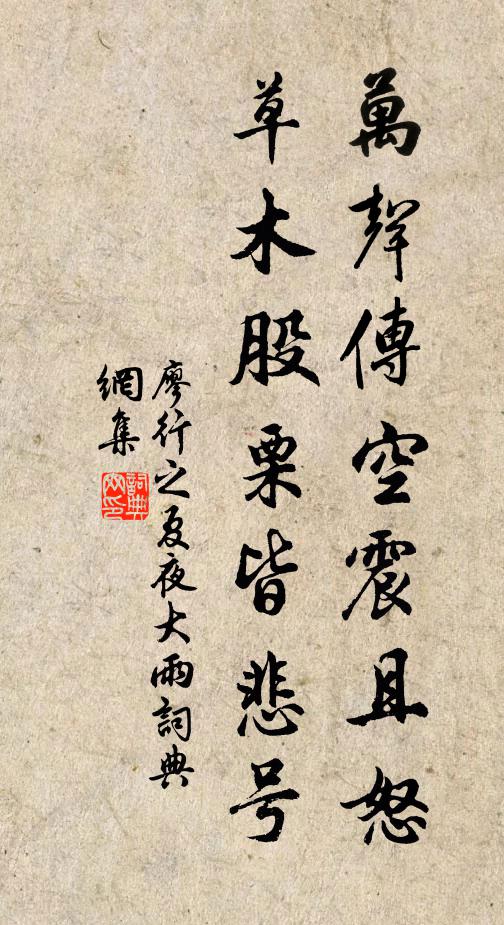 萬聲傳空震且怒
草木股栗皆悲号
廖行之夏夜大雨詞典
網集
詞典網印